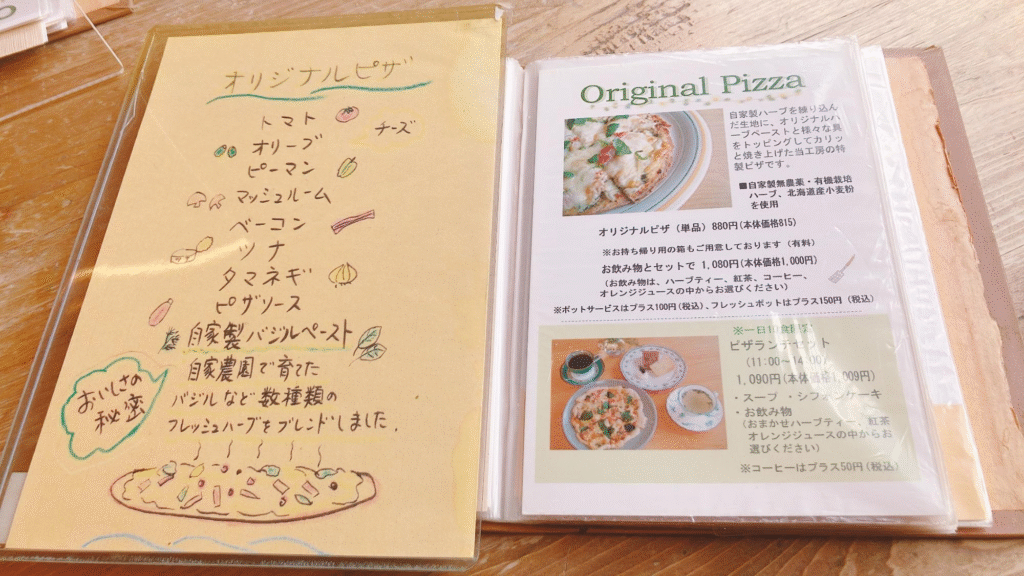 オリジナルピザ
トマト
チーズ
オリーブ
ピーマン
マッシュルーム
ベーコン
ツナ
タマネギ
ピザソース
自家製バジルペースト
自家農園で育てた
バジルなど数種類の
フレッシュハーブをブレンドしました.
おいしさの
秘密
Original Pizza
自家製ハーブを練り込ん
だ生地に、オリジナルハ
ーブペーストと様々な具
をトッピングしてカリッ
と焼き上げた当工房の特
製ピザです。
■自家製無農薬・有機栽培
ハーブ、北海道産小麦粉
を使用
オリジナルピザ（単品）880円(本体価格815)
※お持ち帰り用の箱もご用意しております（有料）
お飲み物とセットで 1,080円(本体価格1,000円)
（お飲み物は、ハーブティー、紅茶、コーヒー、
オレンジジュースの中からお選びください）
※ポットサービスはプラス100円(税込)、フレッシュポットはプラス150円（税込）
※一日10食限定
ピザランチセット
(11:00～14:00)
1,090円(本体価格1,009円)
・スープ ・シフォンケーキ
・お飲み物
(おまかせハーブティー、紅茶
オレンジジュースの中からお
選びください）
※コーヒーはプラス50円(税込)